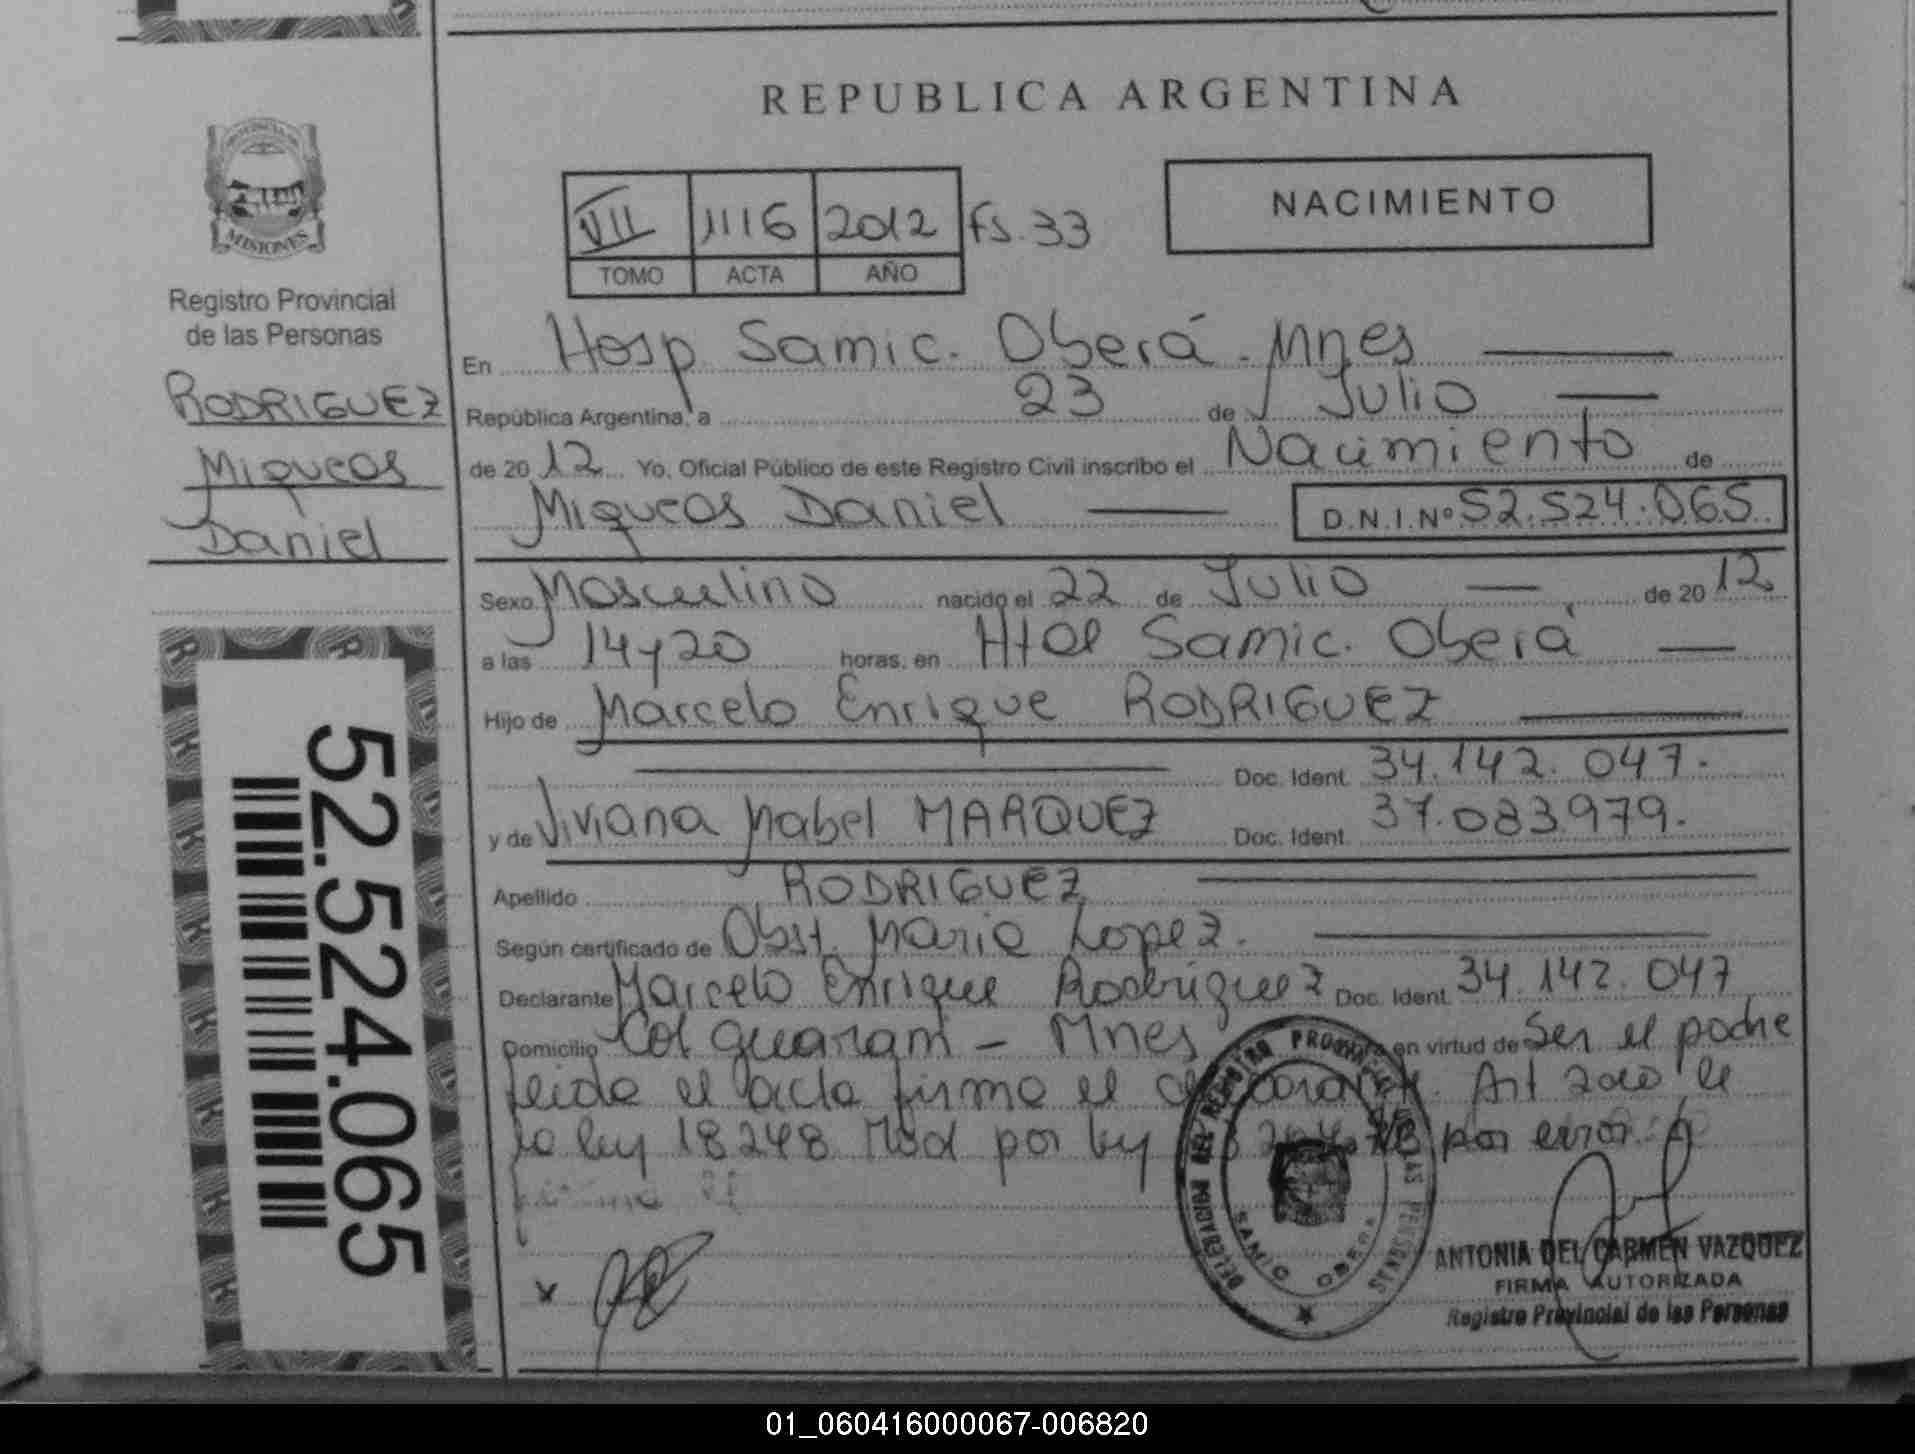 REPUBLICA ARGENTINA
PROVINCIA DE
MISIONES
Registro Provincial
de las Personas
RODRIGUEZ
Miqueas
Daniel
52.524.065
VII 1116 2012 Fs. 33
TOMO ACTA AÑO
NACIMIENTO
En Hosp Samic. Oberá. Mnes
República Argentina, a 23 de Julio
de 2012 Yo, Oficial Público de este Registro Civil inscribo el Nacimiento de
Miqueas Daniel D.N.I.Nº 52.524.065
Sexo Masculino nacido el 22 de Julio de 2012
a las 14 y 20 horas, en Htal Samic. Oberá
Hijo de Marcelo Enrique RODRIGUEZ
Doc. Ident. 34.142.047.
y de Viviana Mabel MARQUEZ Doc. Ident. 37.083.979.
Apellido RODRIGUEZ
Según certificado de Obst. Maria Lopez.
Declarante Marcelo Enrique Rodriguez Doc. Ident. 34.142.047
Domicilio Col Guarani - Mnes en virtud de Ser el padre
leida el acta firma el Art 2do de
la ley 18248 Mod por ley por error
DELEGACION DEL REGISTRO PROVINCIAL DE LAS PERSONAS
SAMIC OBERA
x
ANTONIA DEL CARMEN VAZQUEZ
FIRMA AUTORIZADA
Registro Provincial de las Personas
01_060416000067-006820